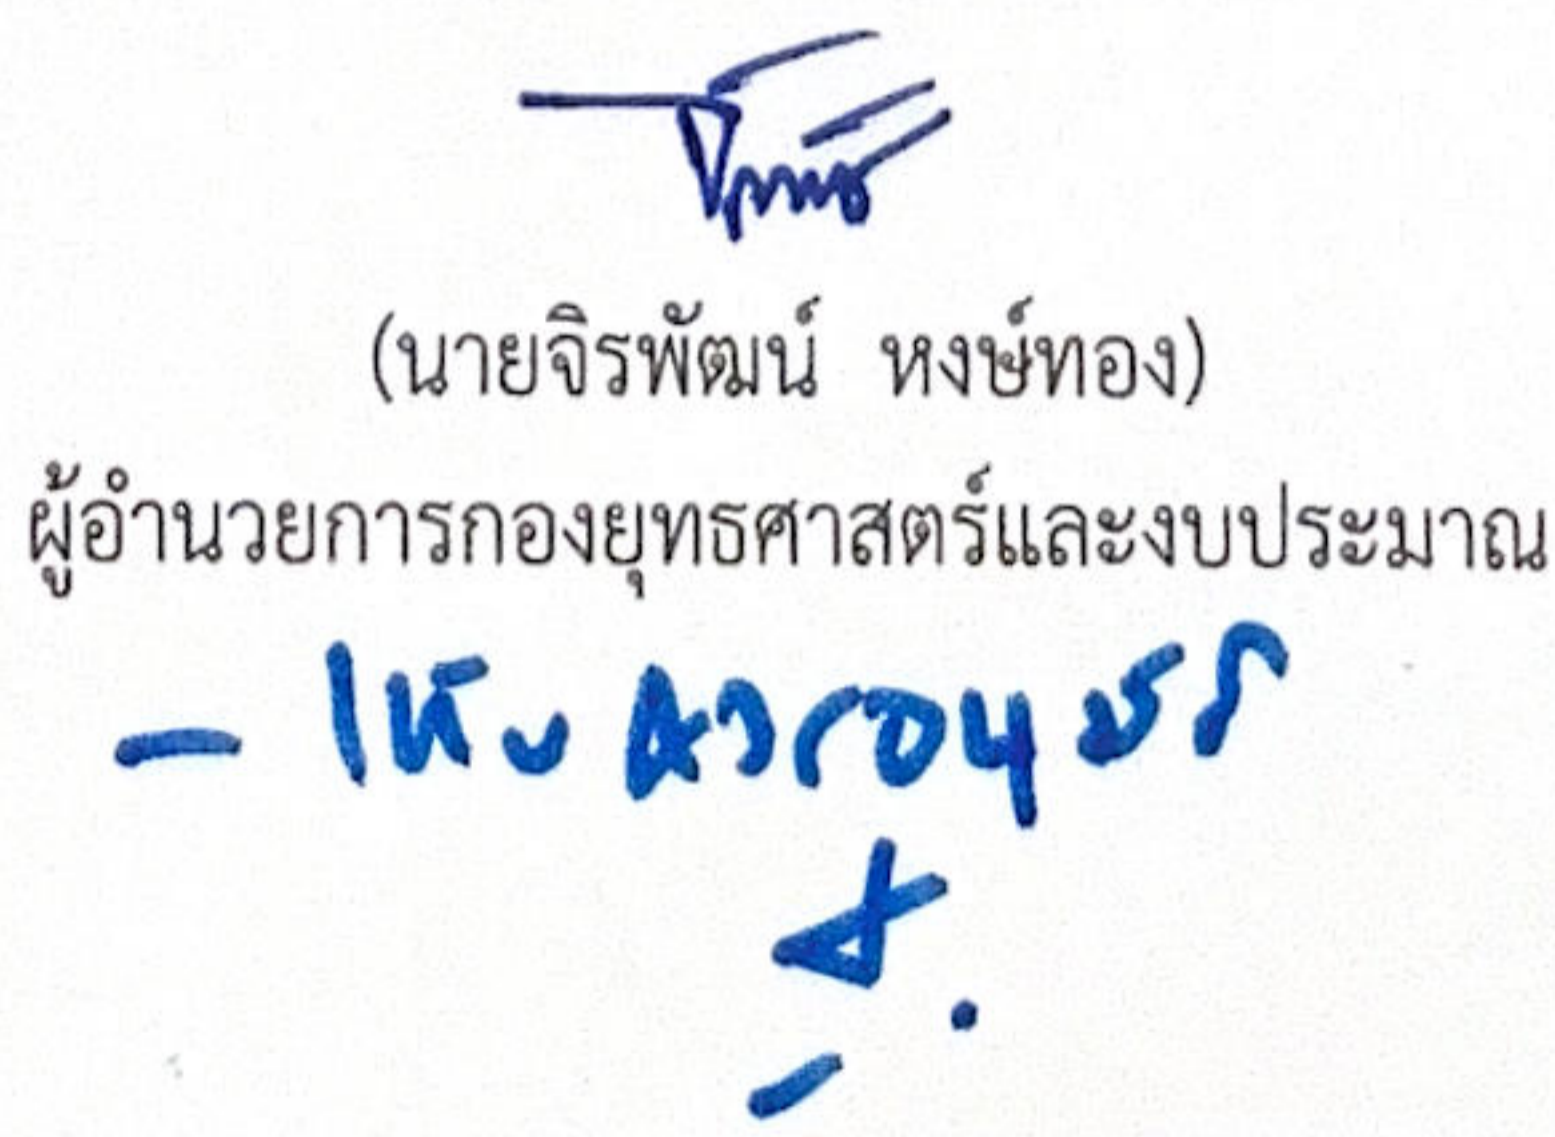 (นายจิรพัฒน์ หงษ์ทอง)
ผู้อำนวยการกองยุทธศาสตร์และงบประมาณ
- เห็นควรอนุมัติ